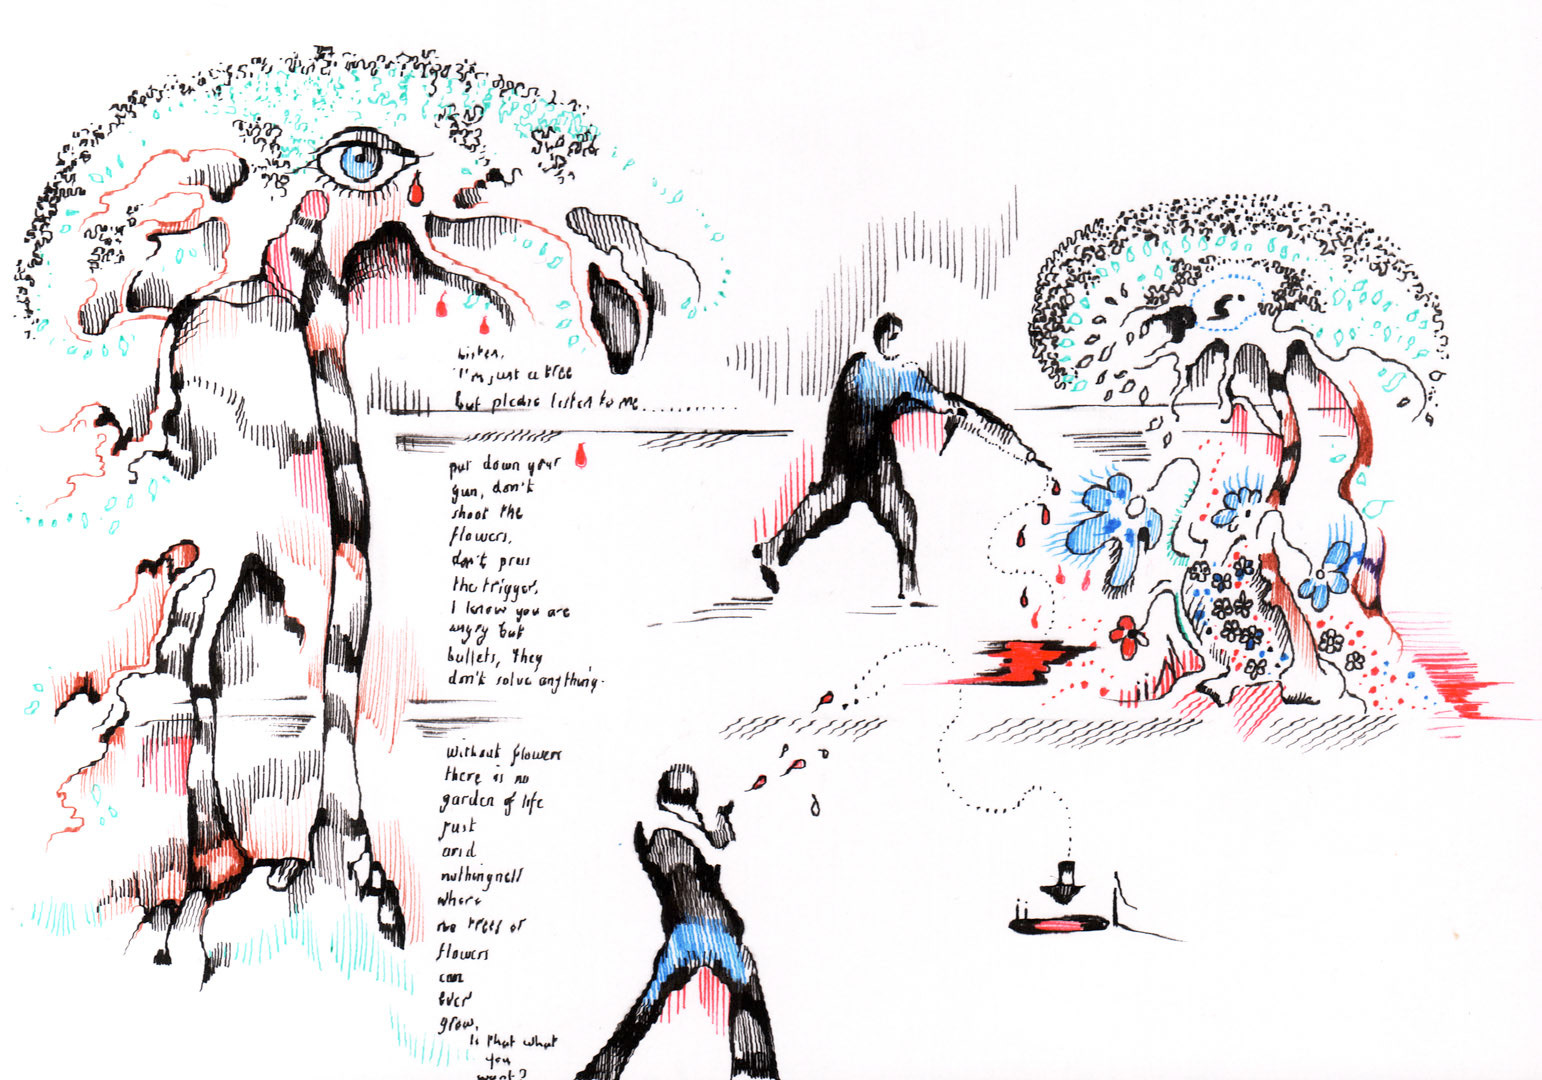 Listen,
I'm just a tree
but please listen to me..............
put down your
gun, don't
shoot the
flowers,
don't press
the trigger,
I know you are
angry but
bullets, they
don't solve anything.
Without flowers
there is no
garden of life
just
arid
nothingness
where
no trees or
flowers
can
ever
grow,
Is that what
you
want?